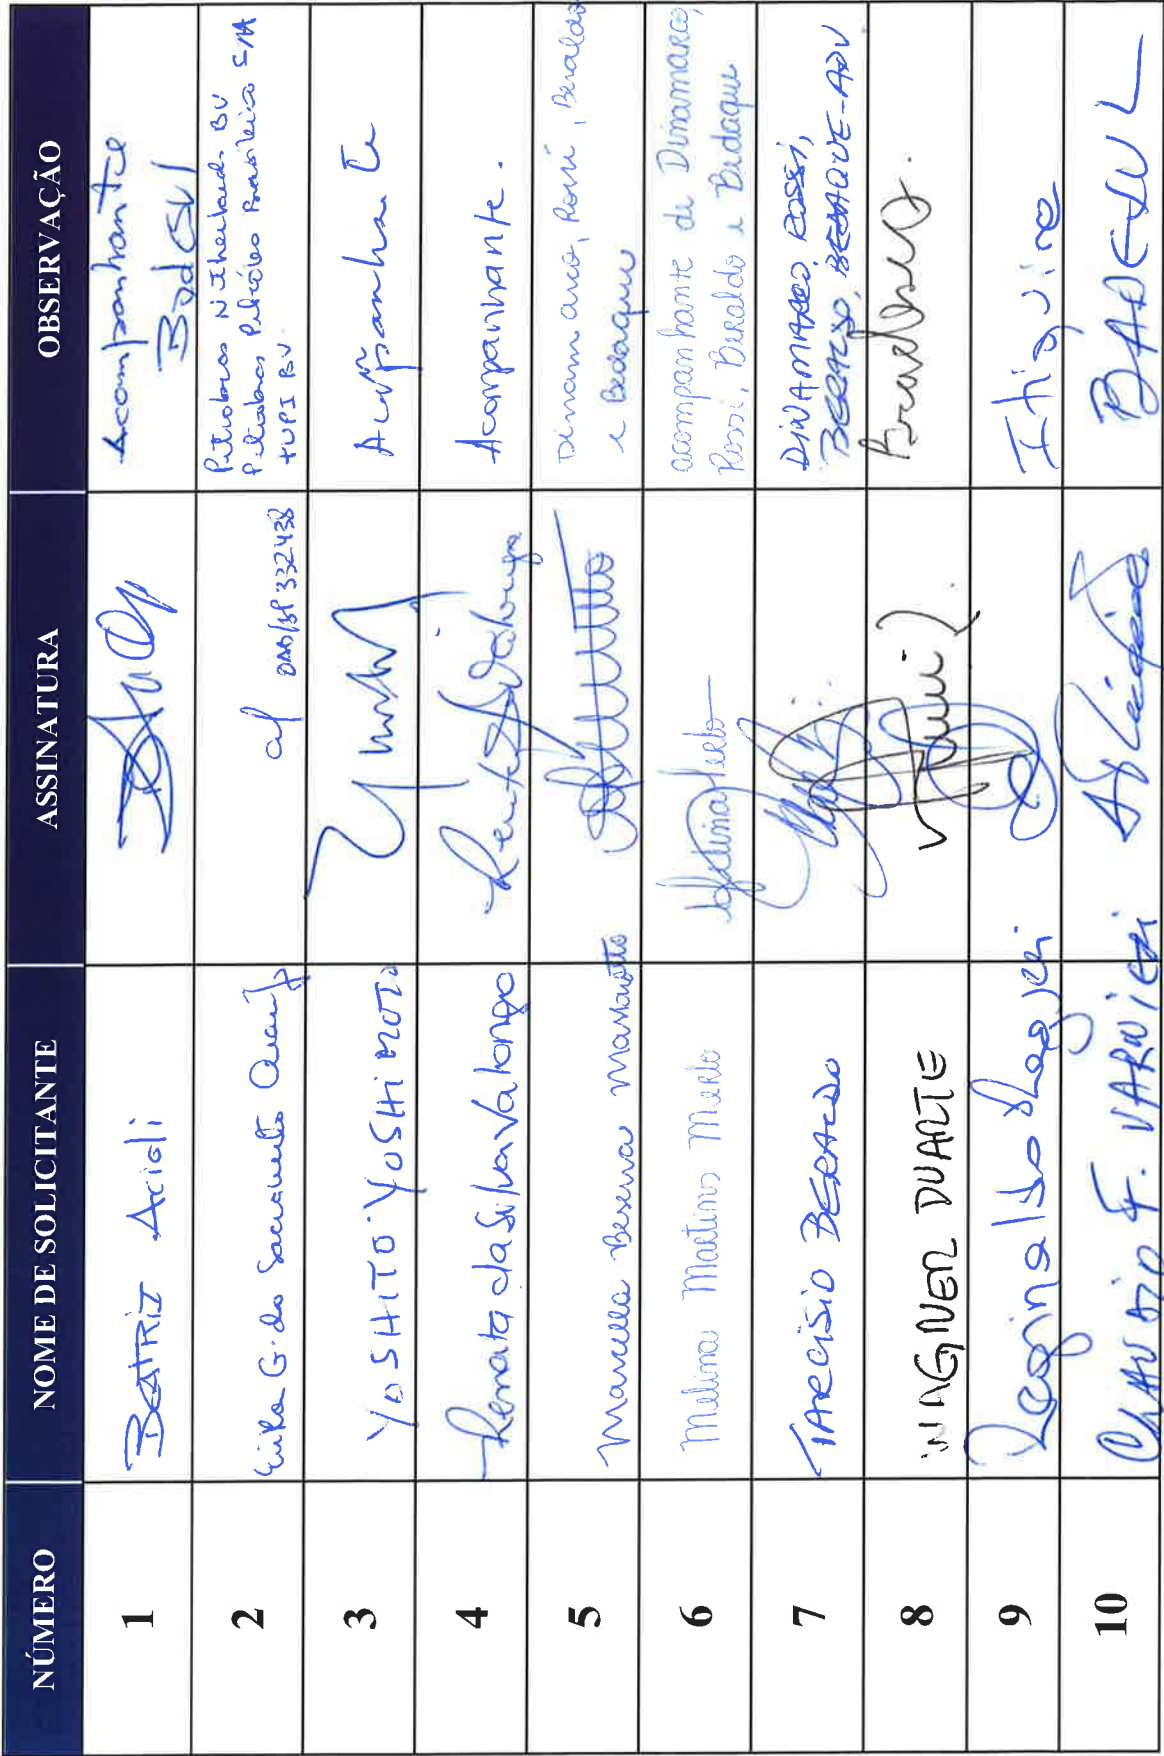 NÚMERO NOME DE SOLICITANTE ASSINATURA OBSERVAÇÃO
1 BEATRIZ Acioli Acompanhante
2 G. do Sacramento Petrobras Netherlands BV
OAB/SP 332438 Petrobras Petróleo Brasileiro S/A
TUPI BV
3 YOSHITO YOSHIMOTO
4 Renata da Silva Valongo Acompanhante.
5 Marcella Beserra Dinamarco, Rossi, Beraldo
e Bedaque
6 Melina Martins Merlo acompanhante de Dinamarco,
Rossi, Beraldo e Bedaque
7 TARCISIO BERALDO DINAMARCO, ROSSI,
BERALDO, BEDAQUE - ADV
8 WAGNER DUARTE Bradesco.
9 Reginaldo
10 CLAUDIO F. BADESUL